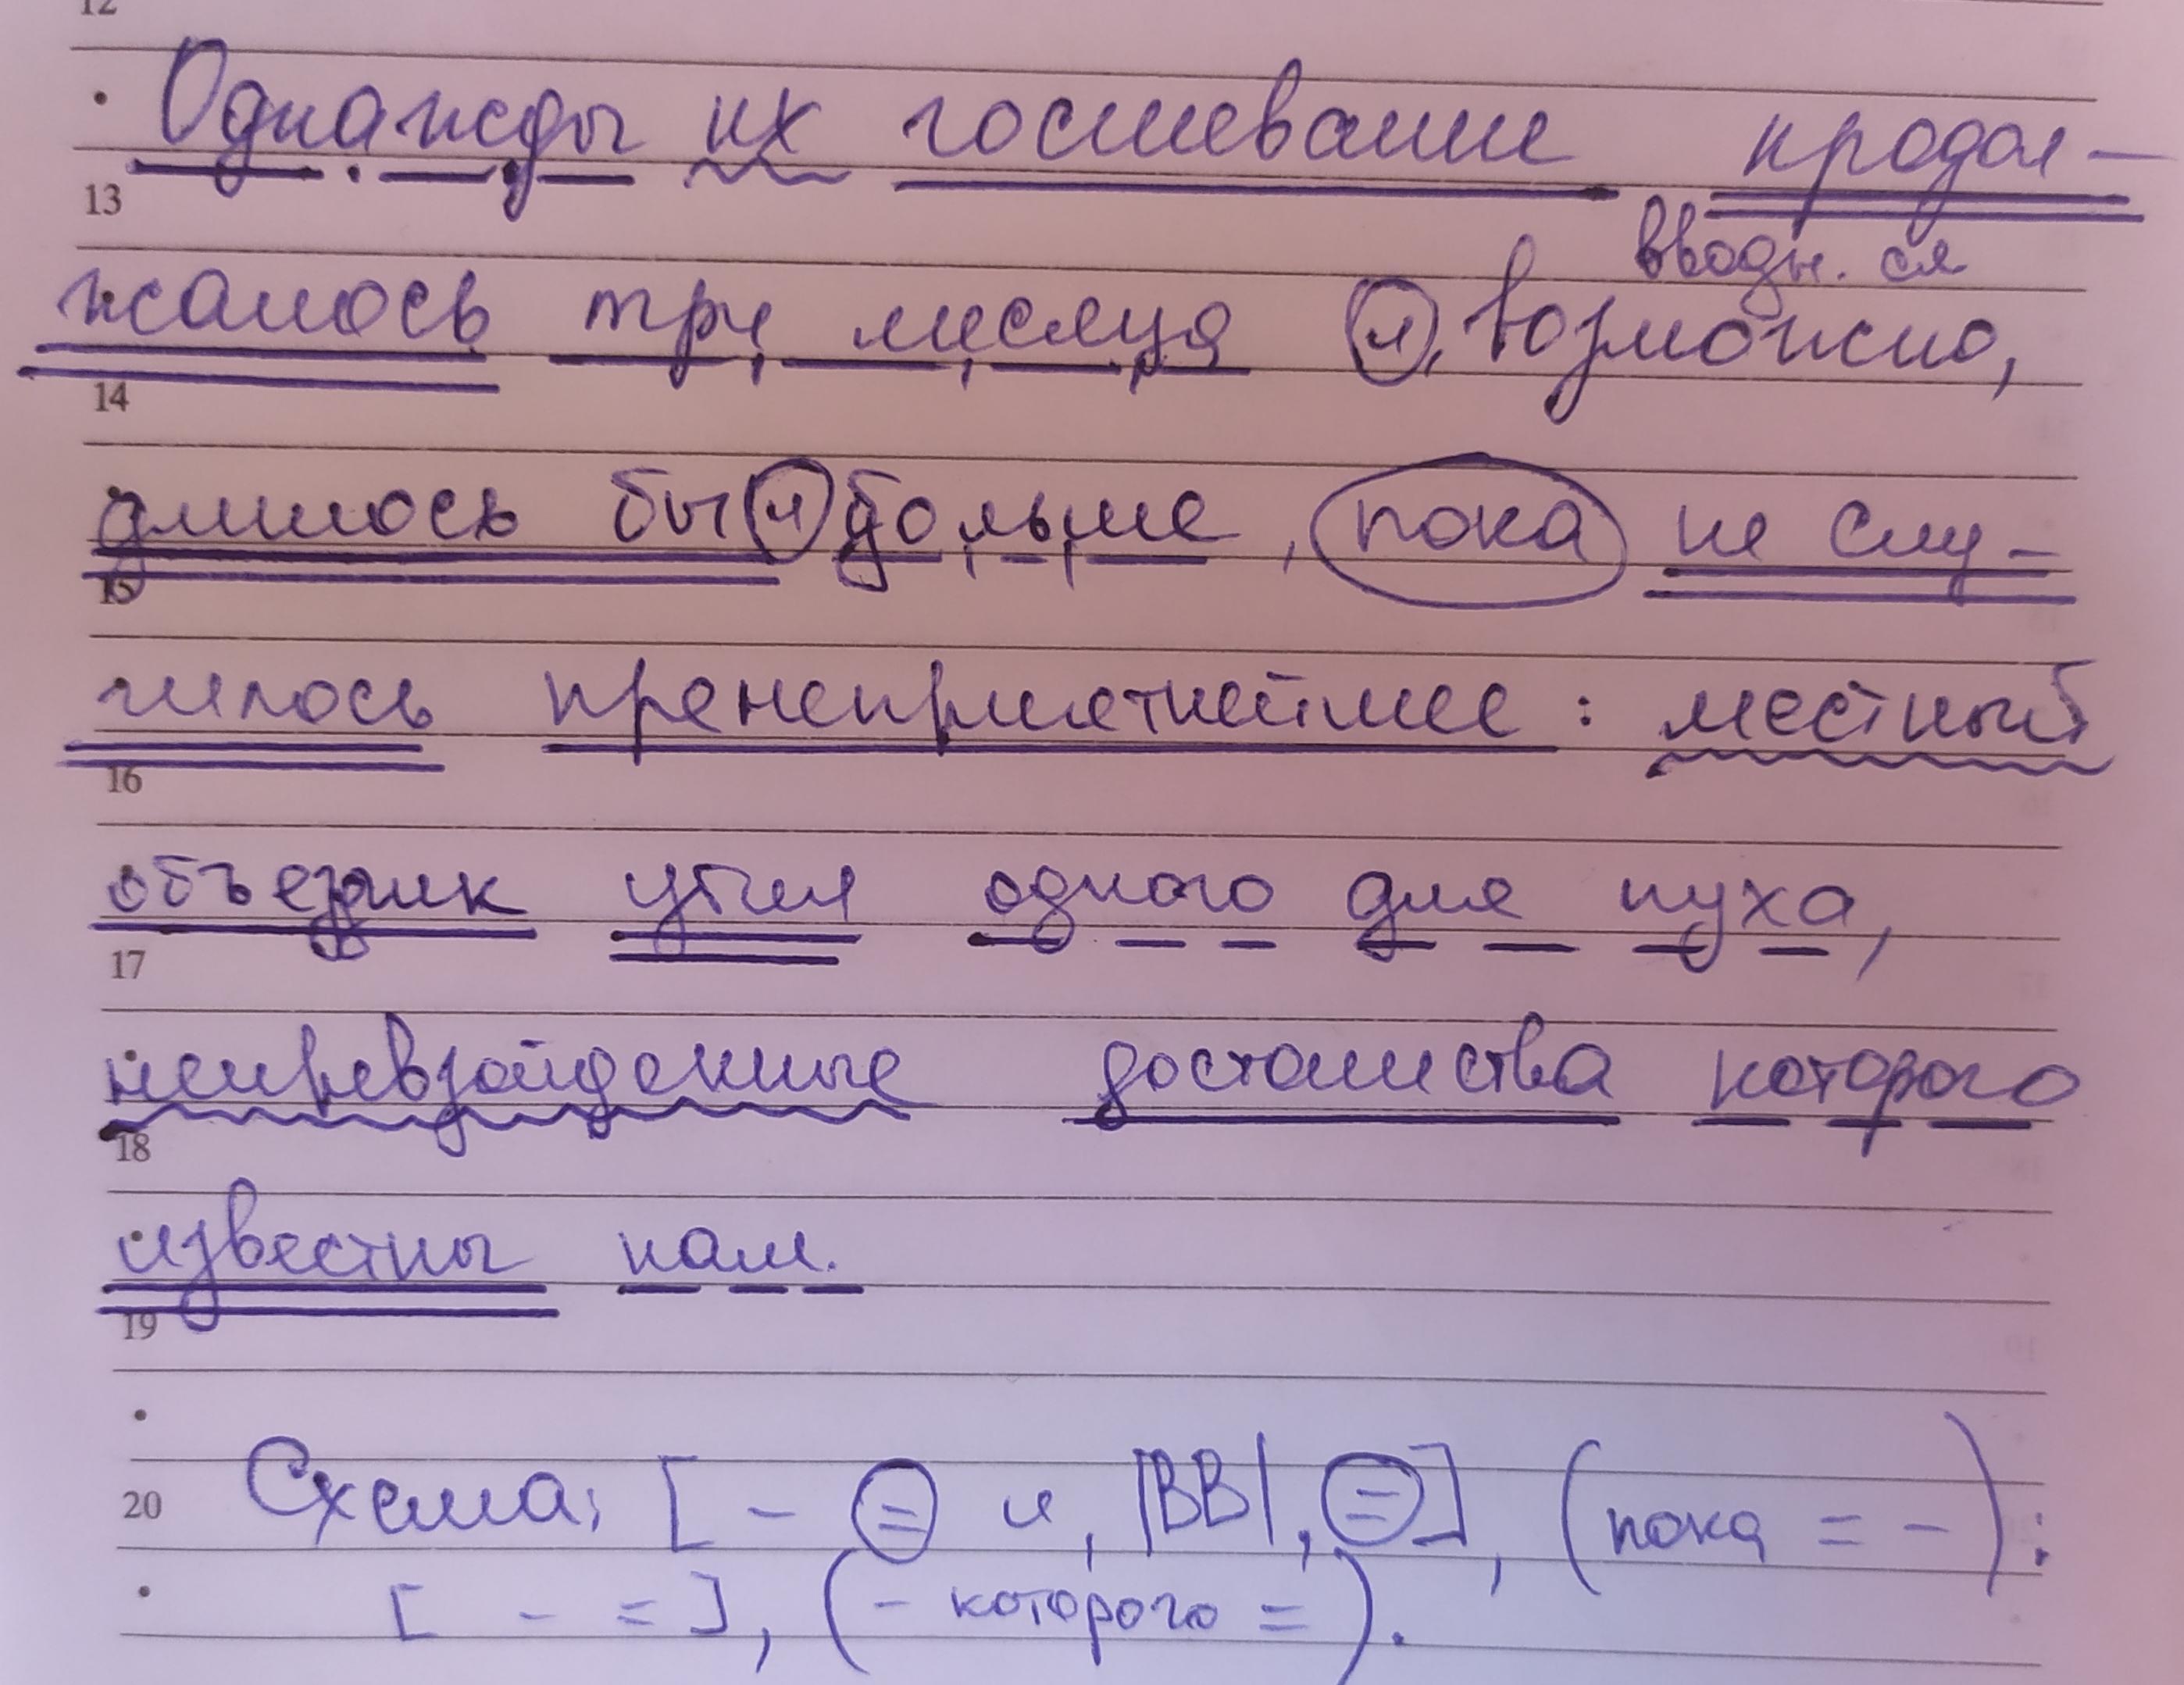 12
Однажды их гостевание продол-
13
вводн. сл
жалось три месяца и, возможно,
14
длилось бы и больше, пока не слу-
15
чилось пренеприятнейшее: местный
16
объездчик убил одного для пуха,
17
непревзойденные достоинства которого
18
известны нам.
19
20 Схема: [ - = и, |ВВ|, = ], (пока = -):
[ - = ], (- которого =).